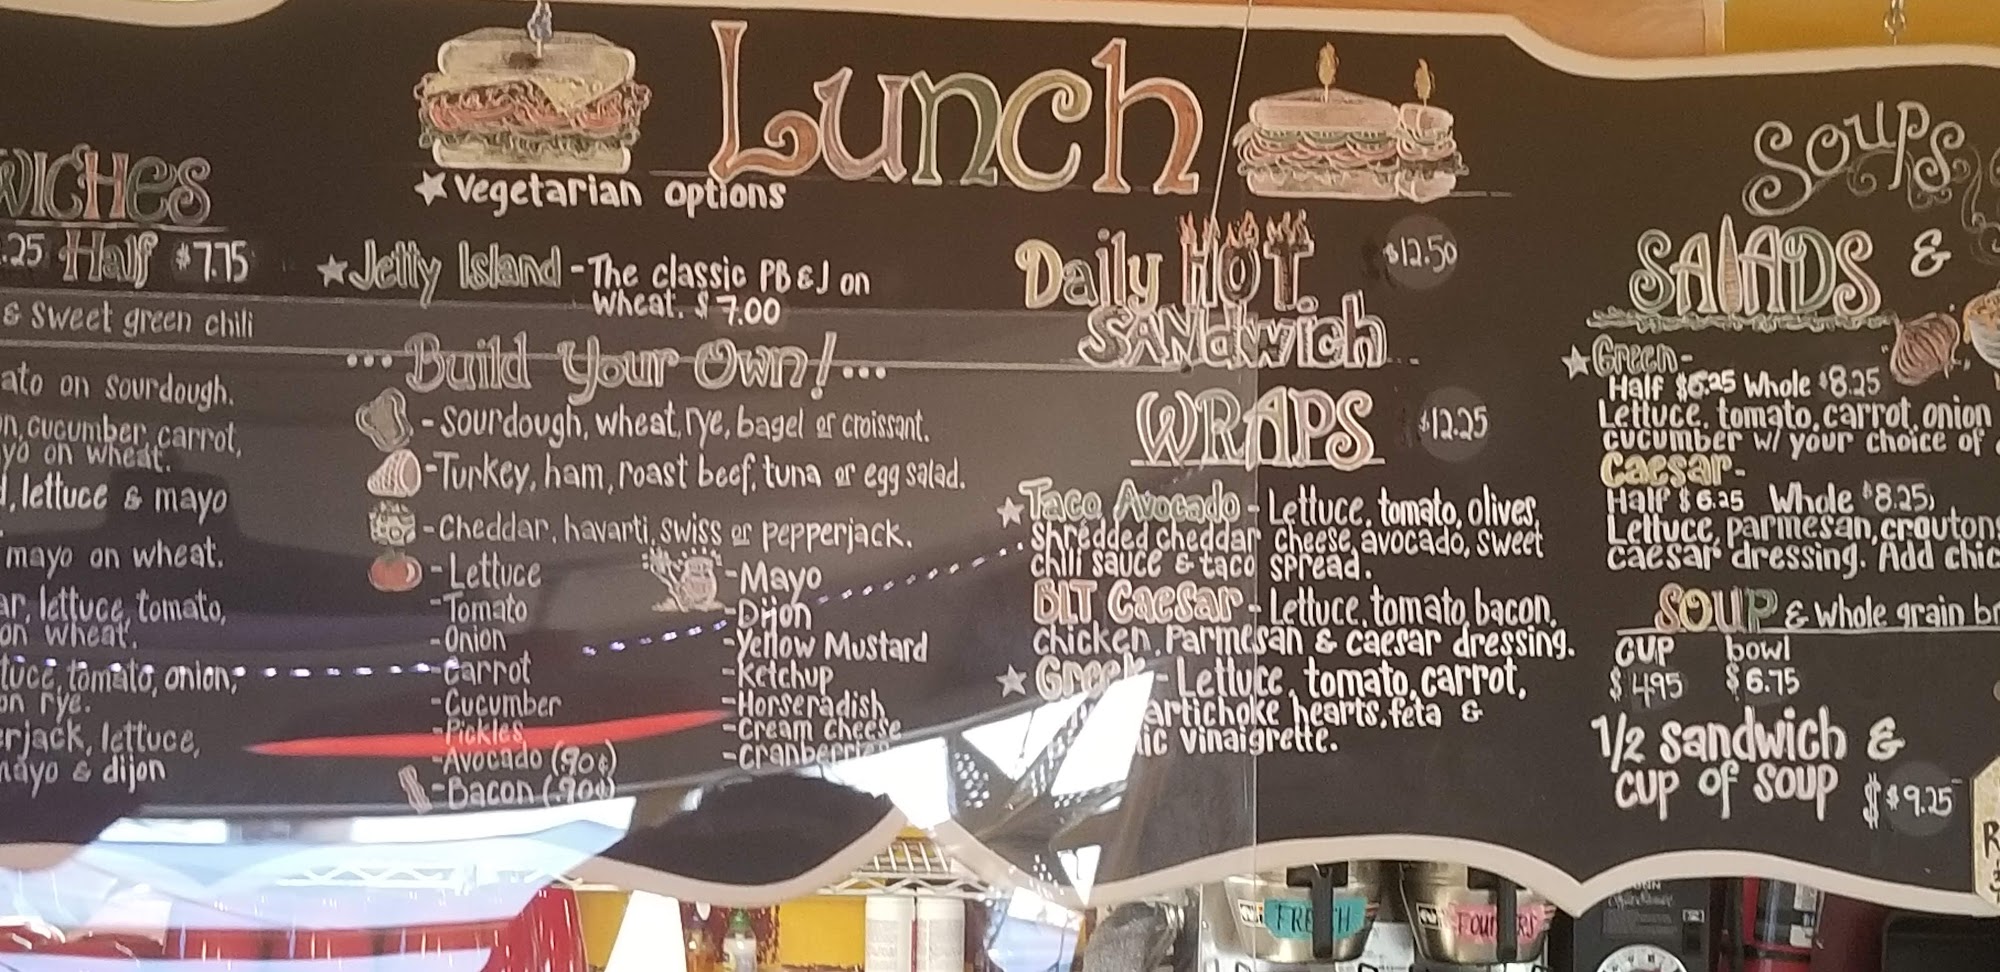 Lunch
★ Vegetarian options
WICHES
.25 Half $7.75
& sweet green chili
ato on sourdough.
n, cucumber, carrot,
yo on wheat.
d, lettuce & mayo
mayo on wheat.
ar, lettuce, tomato,
on wheat.
tuce, tomato, onion,
on rye.
erjack, lettuce,
mayo & dijon
★ Jetty Island - The classic PB & J on
wheat. $7.00
... Build Your Own! ...
- Sourdough, wheat, rye, bagel or croissant.
- Turkey, ham, roast beef, tuna or egg salad.
- Cheddar, havarti, swiss or pepperjack.
- Lettuce
- Tomato
- Onion
- Carrot
- Cucumber
- Pickles
- Avocado (.90¢)
- Bacon (.90¢)
- Mayo
- Dijon
- Yellow Mustard
- Ketchup
- Horseradish
- Cream cheese
- Cranberries
Daily HOT $12.50
SANdwich
WRAPS $12.25
★ Taco Avocado - Lettuce, tomato, olives,
shredded cheddar cheese, avocado, sweet
chili sauce & taco spread.
BLT Caesar - Lettuce, tomato, bacon,
chicken, Parmesan & caesar dressing.
★ Greek - Lettuce, tomato, carrot,
artichoke hearts, feta &
ic vinaigrette.
Soups
SALADS &
★ Green -
Half $6.25 Whole $8.25
Lettuce, tomato, carrot, onion
cucumber w/ your choice of
Caesar -
Half $6.25 Whole $8.25
Lettuce, parmesan, croutons
caesar dressing. Add chic
SOUP & whole grain br
CUP bowl
$4.95 $6.75
1/2 sandwich &
cup of soup $ $9.25
R
FRENCH
FOUNDERS